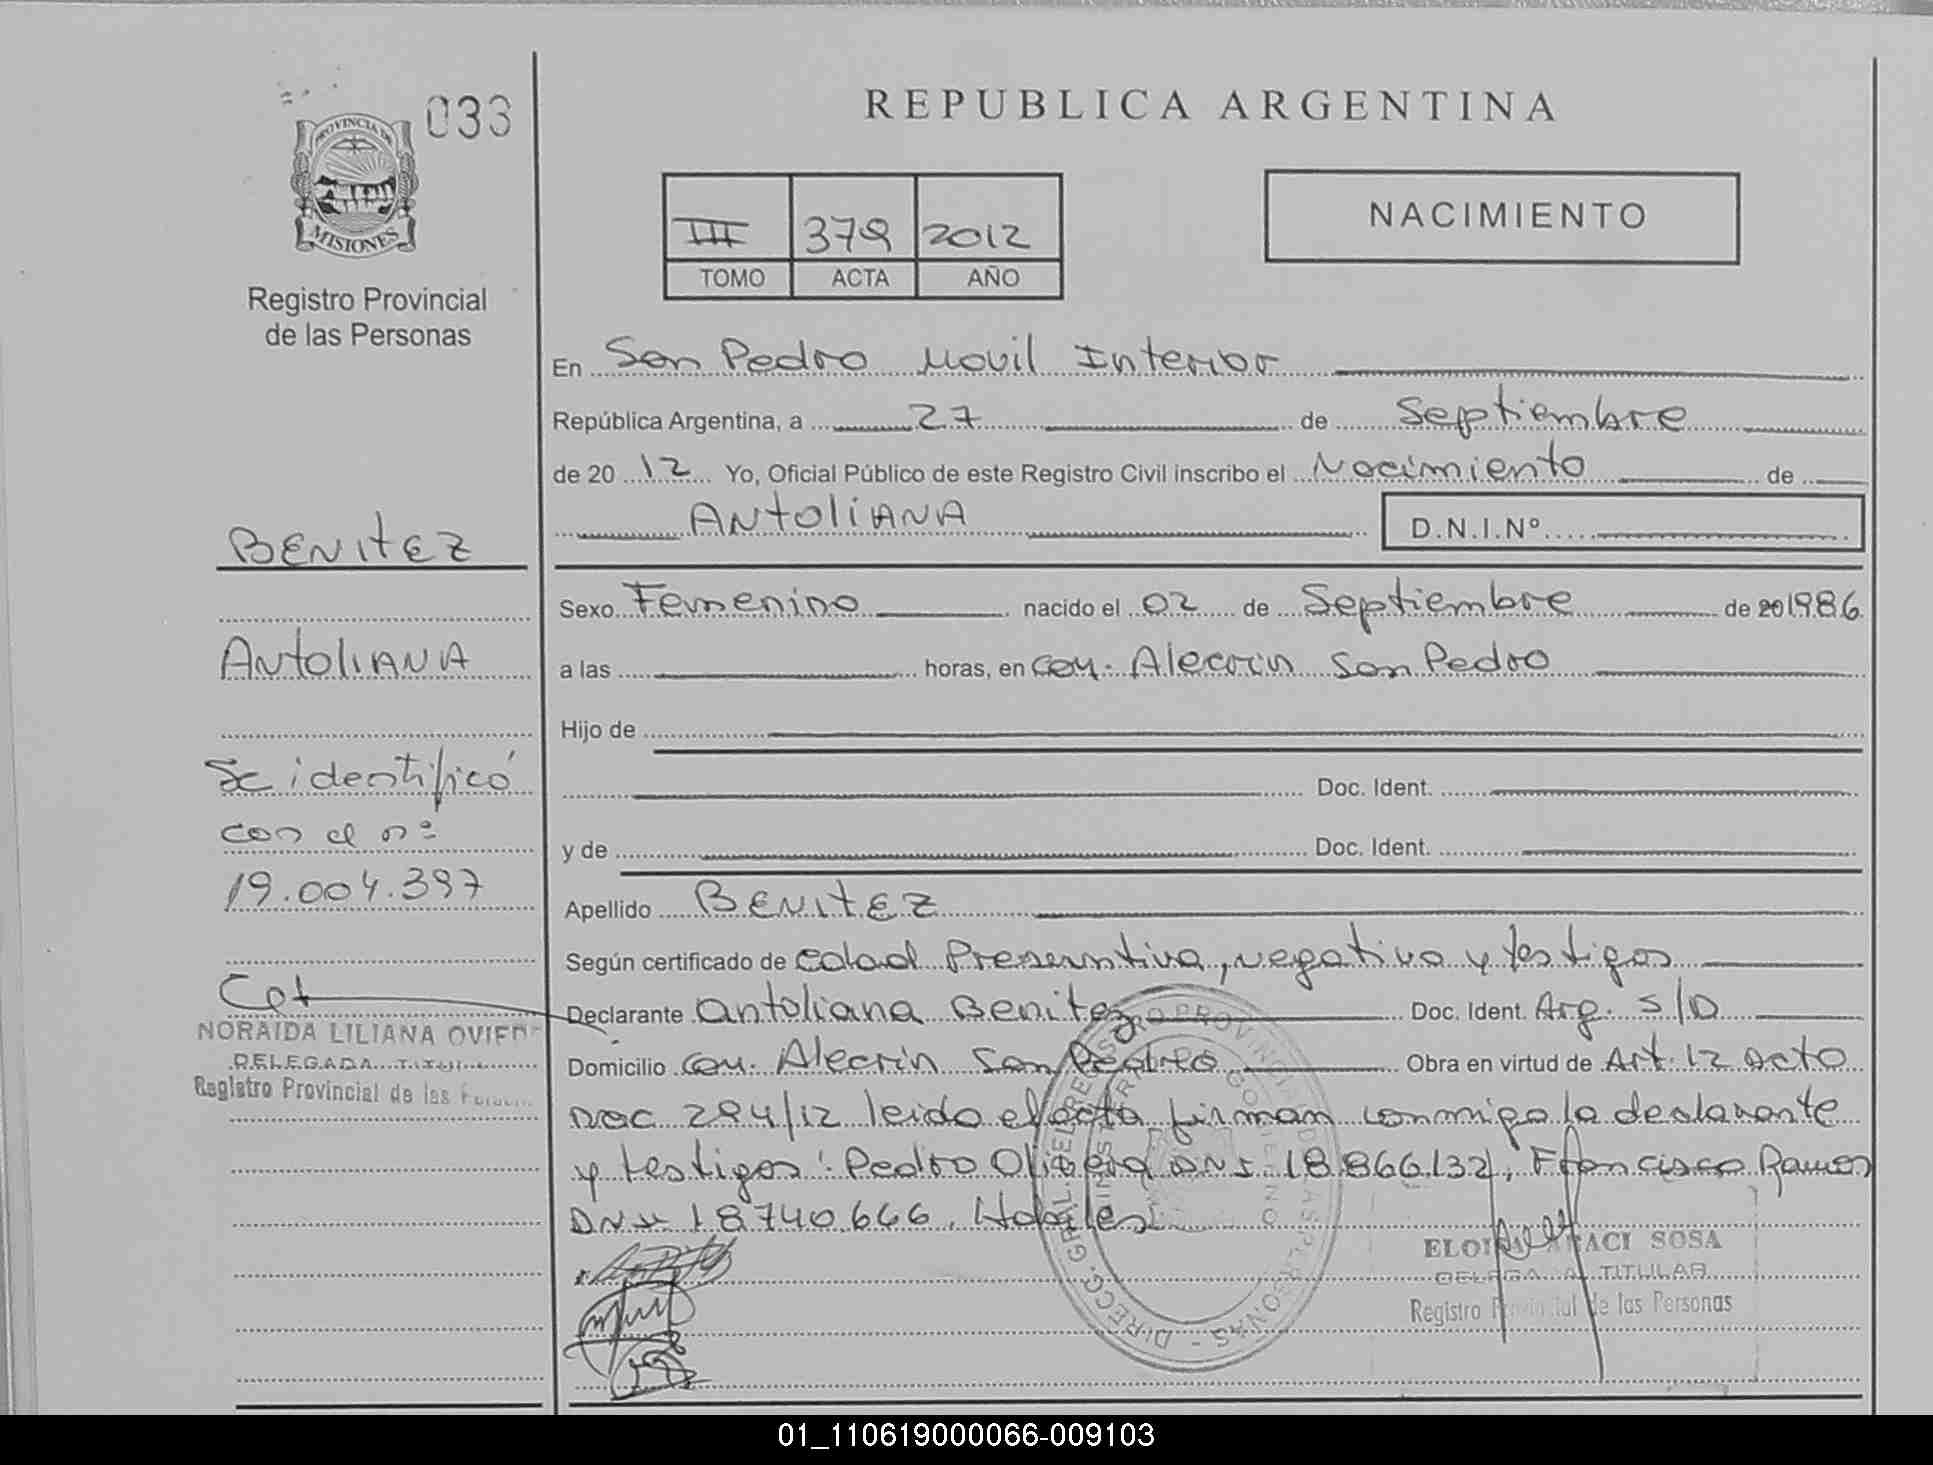 033
PROVINCIA DE
MISIONES
Registro Provincial
de las Personas
BENITEZ
ANTOLIANA
Se identificó
con el nº
19.004.397
NORAIDA LILIANA OVIED
DELEGADA TITUL
Registro Provincial de las
REPUBLICA ARGENTINA
III 379 2012
TOMO ACTA AÑO
NACIMIENTO
En San Pedro Movil Interior
República Argentina, a 27 de Septiembre
de 20 12 Yo, Oficial Público de este Registro Civil inscribo el Nacimiento de
ANTOLIANA D.N.I.Nº
Sexo Femenino nacido el 02 de Septiembre de 20 1986
a las horas, en Com. Alecrin San Pedro
Hijo de
Doc. Ident.
y de Doc. Ident.
Apellido BENITEZ
Según certificado de edad Presuntiva, negativa y testigos
Declarante Antoliana Benitez Doc. Ident. Arg. S/D
Domicilio Com. Alecrin San Pedro Obra en virtud de Art. 12 Acto
294/12 leido el acta firman conmigo la declarante
y testigos: Pedro Olivera DNI 18.866.132, Francisco Ramos
DNI 18740.666. Habiles.
SOSA
TITULAR
Registro Provincial de las Personas
01_110619000066-009103